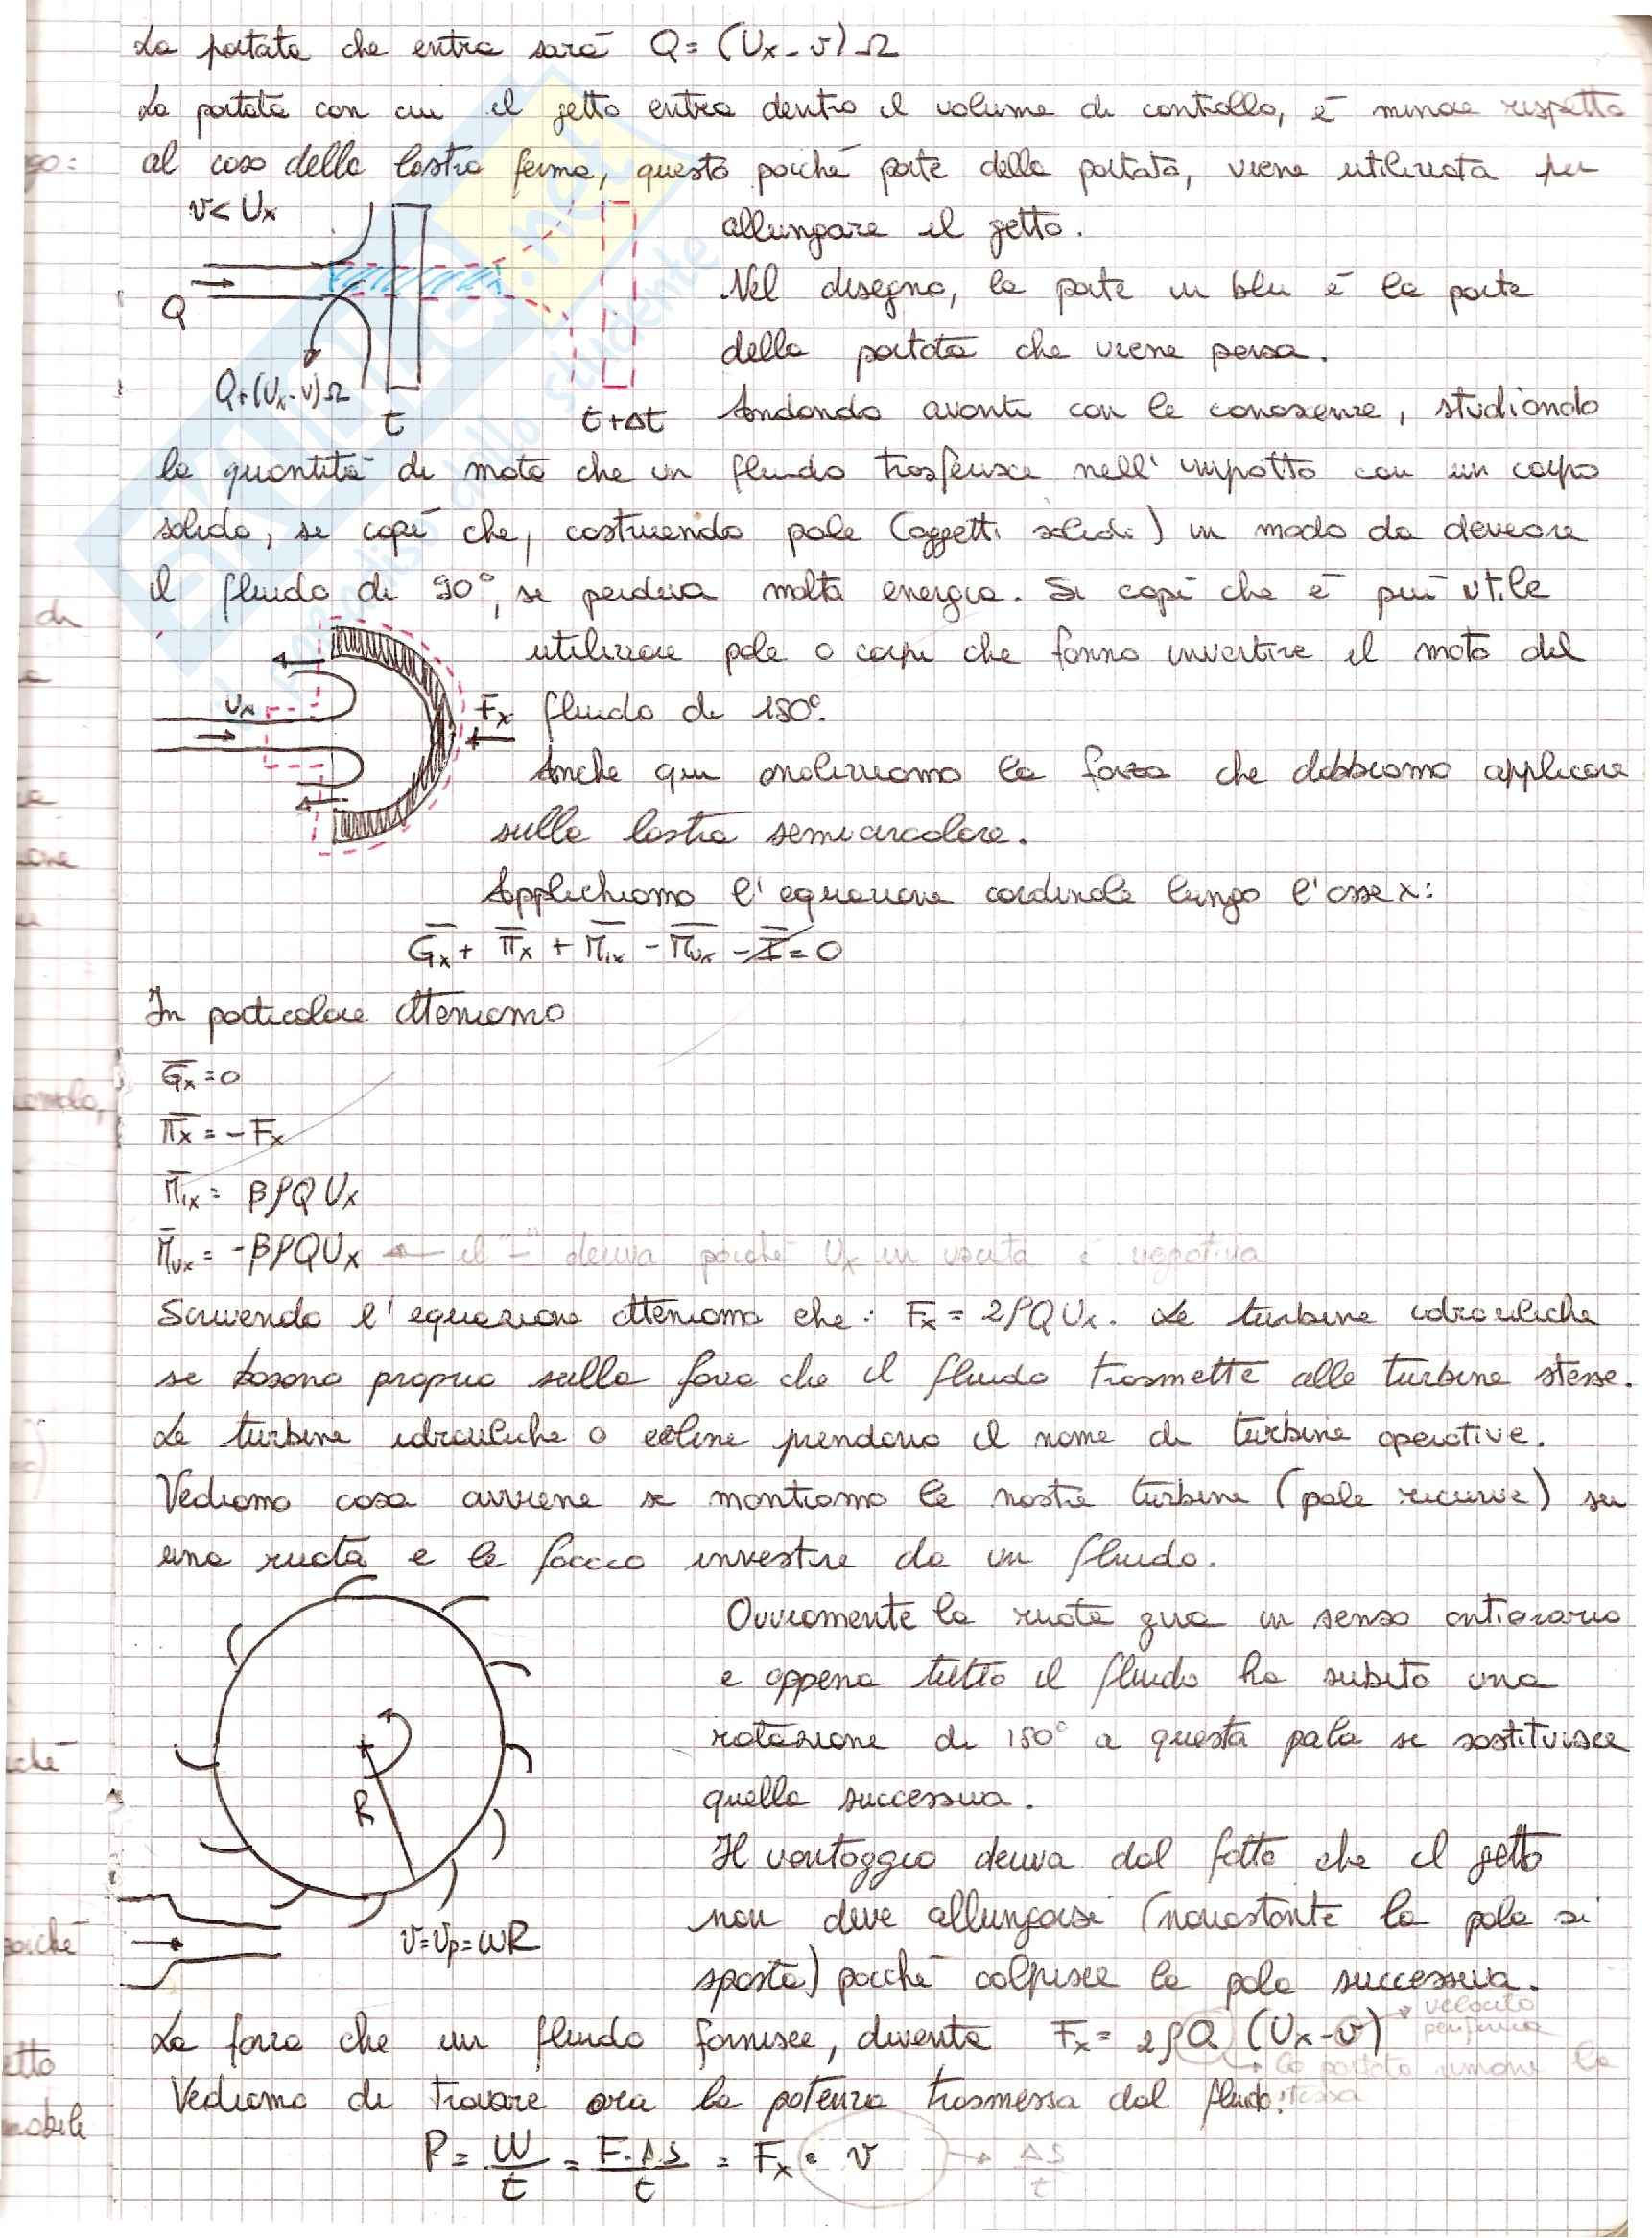 La portata che entra sarà Q = (Ux - v) Ω
La portata con cui il getto entra dentro il volume di controllo, è minore rispetto
al caso della lastra ferma, questo poiché parte della portata, viene utilizzata per
v < Ux
allungare il getto.
Nel disegno, la parte in blu è la parte
Q
della portata che viene persa.
Q+(Ux-v)Ω
t
t+Δt
Andando avanti con le conoscenze, studiando
la quantità di moto che un fluido trasferisce nell'impatto con un corpo
solido, si capì che, costruendo pale (oggetti solidi) in modo da deviare
il fluido di 90°, si perdeva molta energia. Si capì che è più utile
utilizzare pale o corpi che fanno invertire il moto del
Ux
Fx
fluido di 180°.
Anche qui analizziamo la forza che dobbiamo applicare
sulla lastra semicircolare.
Applichiamo l'equazione cardinale lungo l'asse x:
Gx + Πx + Mix - Mux - I = 0
In particolare otteniamo
Gx = 0
Πx = - Fx
Mix = βρQUx
Mux = -βρQUx ← il "-" deriva poiché Ux in uscita è negativa
Scrivendo l'equazione otteniamo che: Fx = 2ρQUx. Le turbine idrauliche
si basano proprio sulla forza che il fluido trasmette alle turbine stesse.
Le turbine idrauliche o eoline prendono il nome di turbine operative.
Vediamo cosa avviene se montiamo le nostre turbine (pale ricurve) su
una ruota e le faccio investire da un fluido.
Ovviamente la ruota gira in senso antiorario
e appena tutto il fluido ha subito una
rotazione di 180° a questa pala si sostituisce
R
quella successiva.
Il vantaggio deriva dal fatto che il getto
non deve allungarsi (nonostante la pala si
v = vp = ωR
sposta) poiché colpisce la pala successiva.
La forza che un fluido fornisce, diventa Fx = 2ρQ (Ux - v)
velocità
periferica
la portata rimane la
stessa
Vediamo di trovare ora la potenza trasmessa dal fluido:
P = W/t = F·ΔS/t = Fx · v → ΔS/t